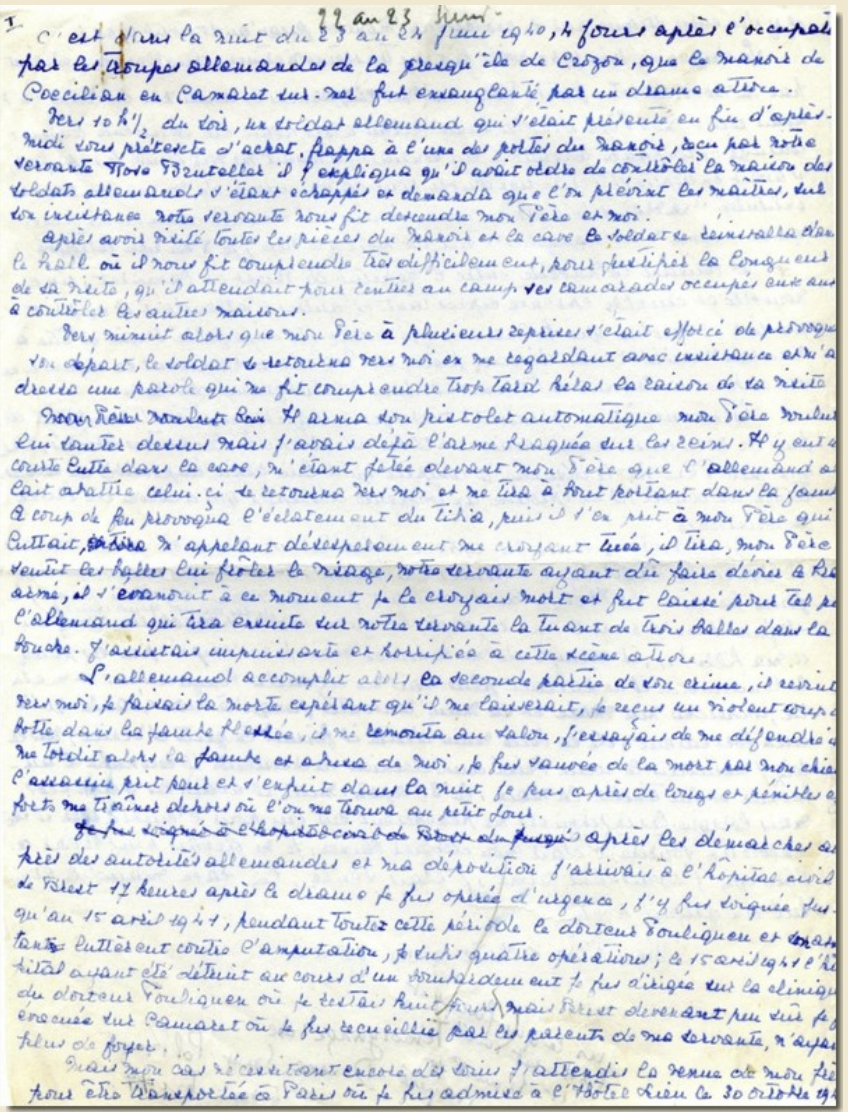 I
22 au 23 Juin
C'est dans la nuit du 23 au 24 Juin 1940, 4 jours après l'occupati
par les troupes allemandes de la presqu'île de Crozon, que le manoir de
Coecilian en Camaret sur-mer fut ensanglanté par un drame atroce.
Vers 10 h 1/2 du soir, un soldat allemand qui s'était présenté en fin d'après-
midi sous prétexte d'achat, frappa à l'une des portes du Manoir, reçu par notre
servante Rose Bruteller il expliqua qu'il avait ordre de contrôler la maison des
soldats allemands s'étant échappés et demanda que l'on prévint les maîtres, sur
son insistance notre servante nous fit descendre mon Père et moi.
Après avoir visité toutes les pièces du Manoir et la cave le soldat se réinstalla dan
le hall où il nous fit comprendre très difficilement, pour justifier la longueur
de sa visite, qu'il attendait pour rentrer au camp ses camarades occupés eux aus
à contrôler les autres maisons.
Vers minuit alors que mon Père à plusieurs reprises s'était efforcé de provoque
son départ, le soldat se retourna vers moi en me regardant avec insistance et m'a
dressa une parole qui me fit comprendre trop tard hélas la raison de sa visite
Mon Père voulut lui Il arma son pistolet automatique mon Père voulut
lui sauter dessus mais j'avais déjà l'arme braquée sur les reins. Il y eut u
courte lutte dans la cave, m'étant jetée devant mon Père que l'allemand al
lait abattre celui-ci se retourna vers moi et me tira à bout portant dans la jamb
le coup de feu provoqua l'éclatement du tibia, puis il s'en prit à mon Père qui
luttait, m'appelant désespérement me croyant tuée, il tira, mon Père
sentit les balles lui frôler le visage, notre servante ayant dû faire dévier le bra
armé, il s'évanouit à ce moment je le croyais mort et fut laissé pour tel pa
l'allemand qui tira ensuite sur notre servante la tuant de trois balles dans la
bouche. J'assistais impuissante et horrifiée à cette scène atroce.
L'allemand accomplit alors la seconde partie de son crime, il revint
vers moi, je faisais la morte espérant qu'il me laisserait, je reçus un violent coup d
botte dans la jambe blessée, il me remonta au salon, j'essayais de me défendre i
me tordit alors la jambe et abusa de moi, je fus sauvée de la mort par mon chien
l'assassin prit peur et s'enfuit dans la nuit. Je pus après de longs et pénibles ef
forts me traîner dehors où l'on me trouva au petit jour.
Je fus soignée à l'hôpital civil de Brest après les démarches au
près des autorités allemandes et ma déposition j'arrivais à l'hôpital civil
de Brest 17 heures après le drame je fus opérée d'urgence, j'y fus soignée jus-
qu'au 15 avril 1941, pendant toute cette période le docteur Pouliquen et ses assis
tants luttèrent contre l'amputation, je subis quatre opérations; le 15 avril 1941 l'hô
pital ayant été détruit au cours d'un bombardement je fus dirigée sur la clinique
du docteur Pouliquen où je restais huit jours, mais Brest devenant peu sûr je f
évacuée sur Camaret où je fus recueillie par les parents de ma servante, n'ayant
plus de foyer.
Mais mon cas nécessitant encore des soins j'attendis la venue de mon frè
pour être transportée à Paris où je fus admise à l'Hôtel Dieu le 30 octobre 194